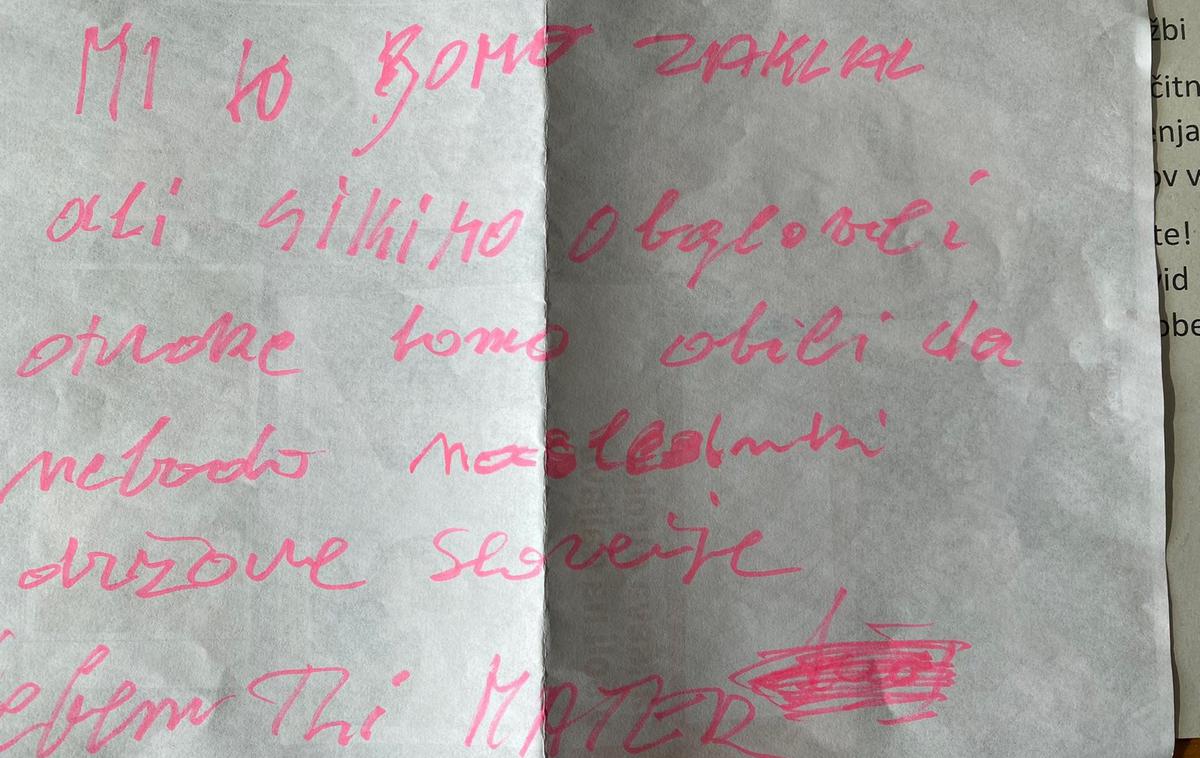 MI to BOMO ZAKLAL
ali sikiro obglovili
otroke bomo obili da
nebodo nasledniki
države Slovenije
Jebem Thi MATER
žbi
čitn
enja
ov v
te!
vid
obe